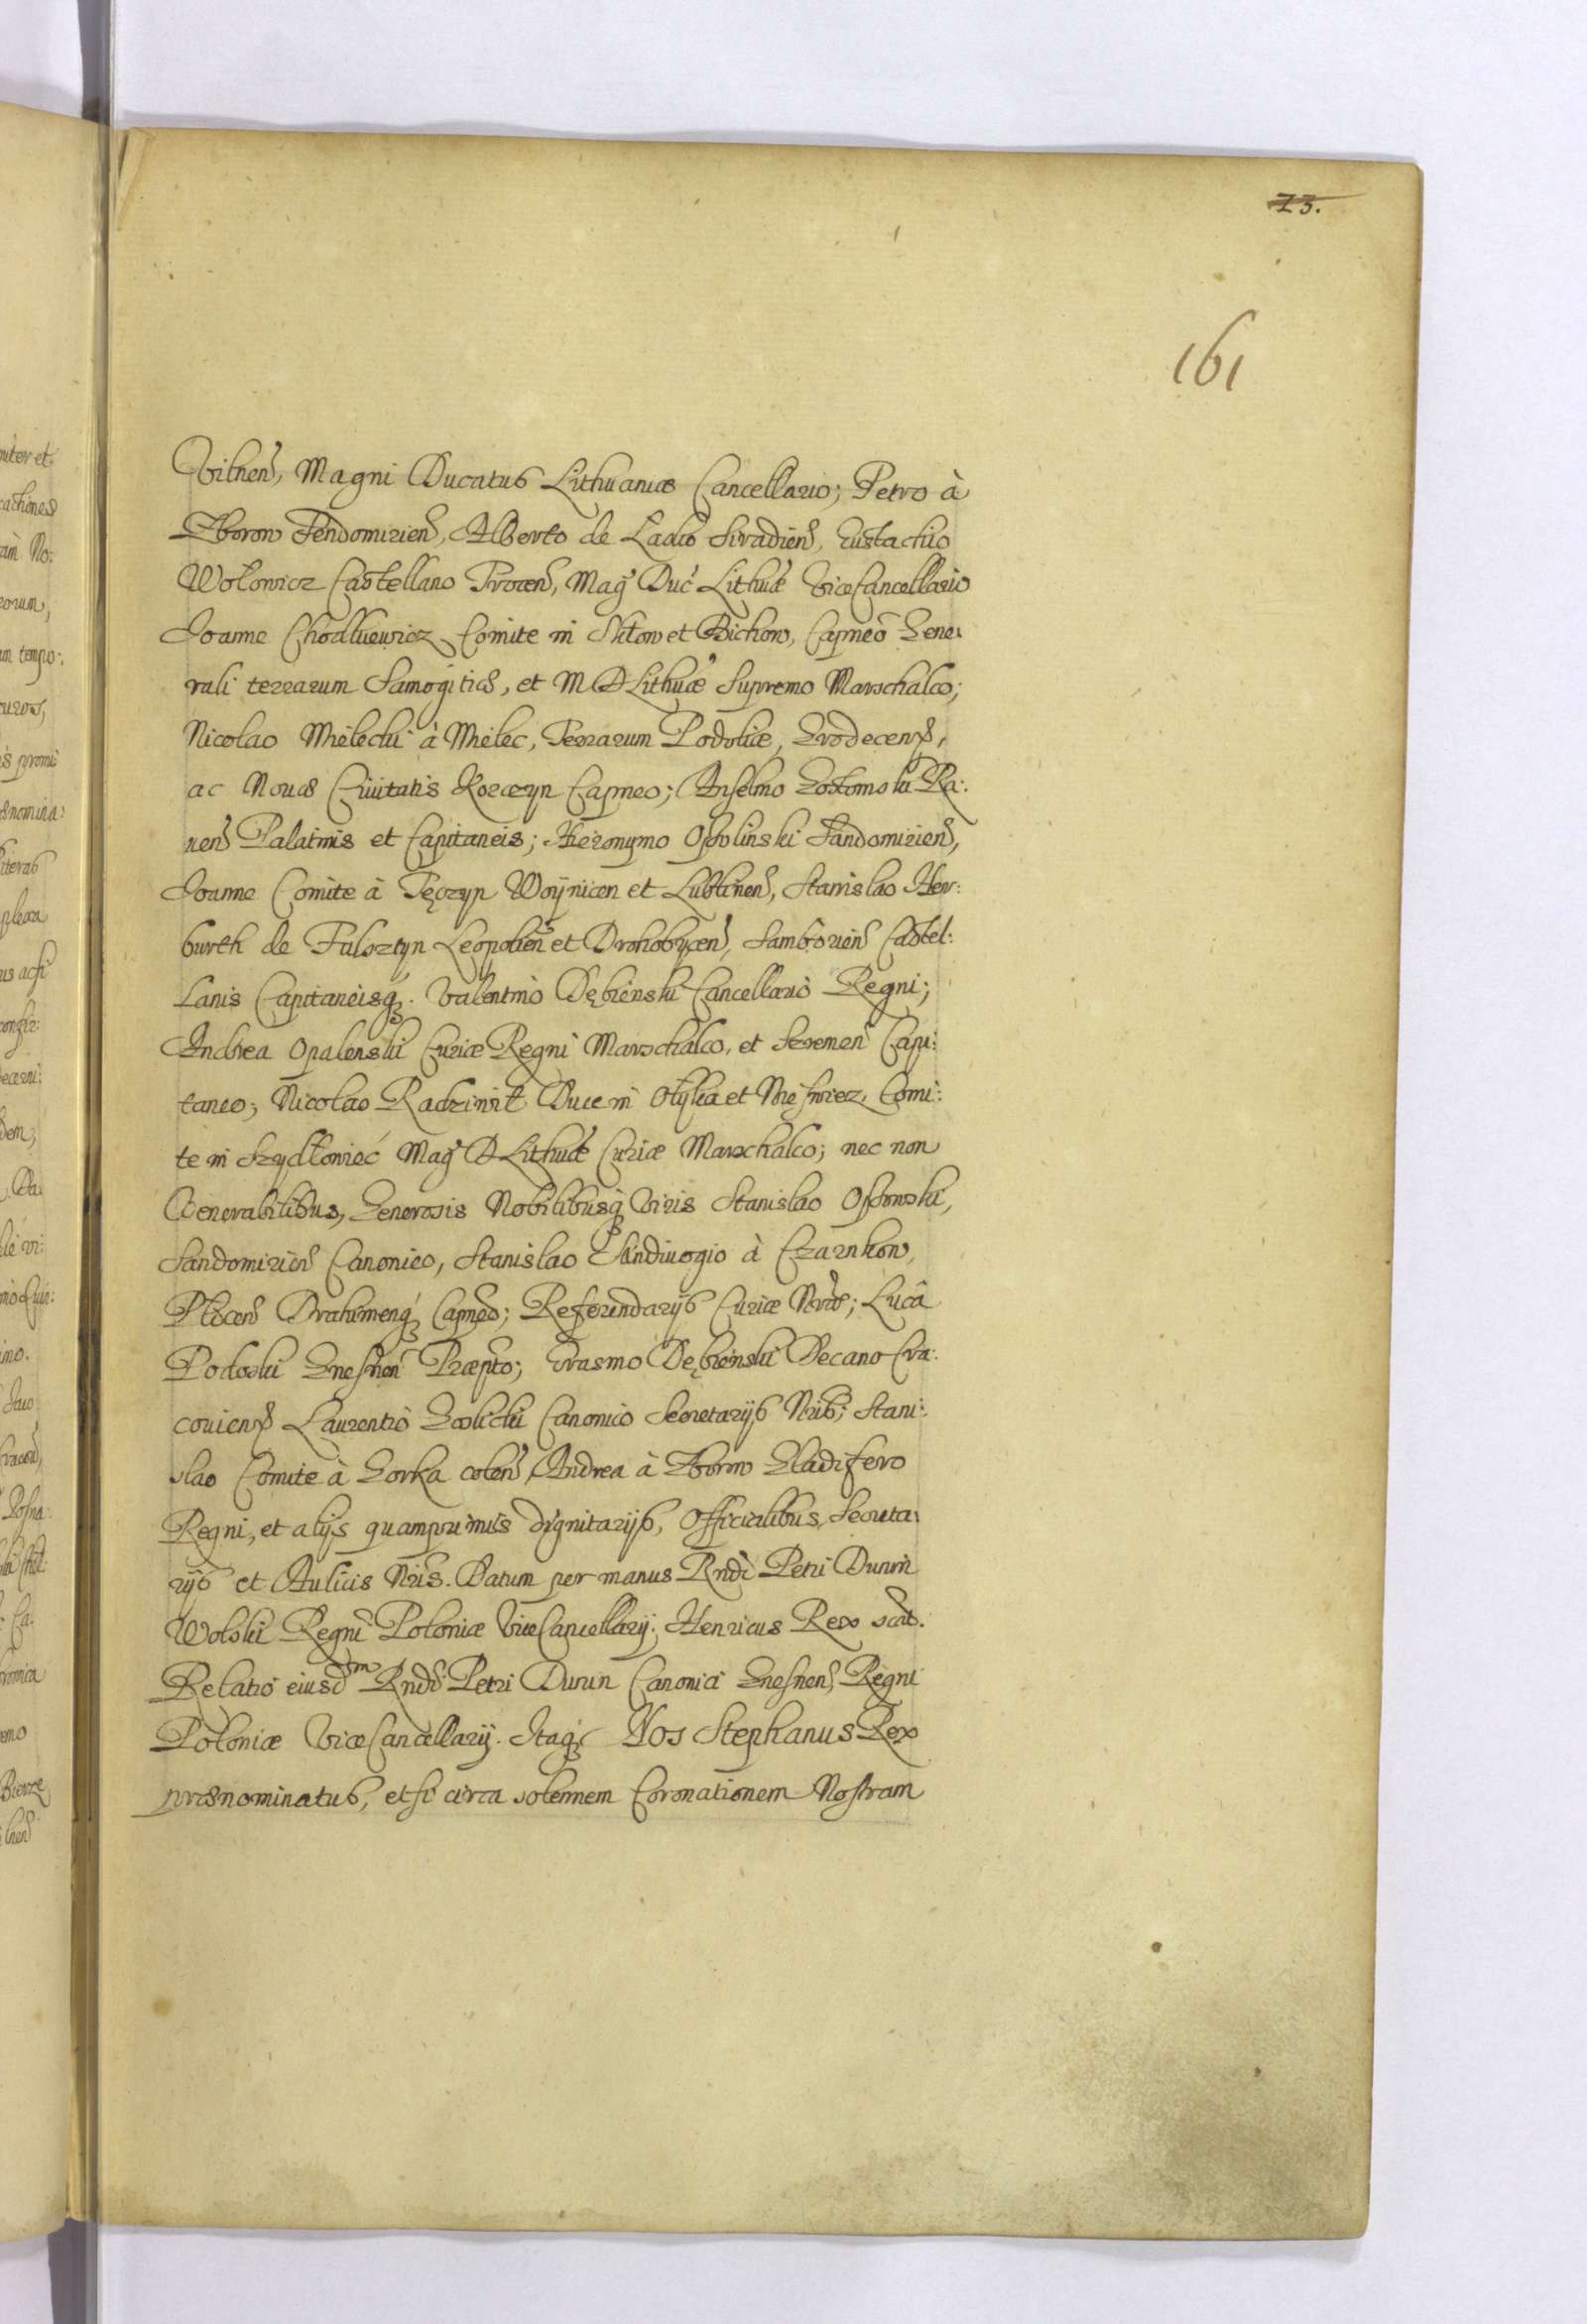 23.
161
Vilnen, Magni Ducatus Lithuaniæ Cancellario; Petro à
Zborow Sendomirien, Alberto de Lasko Siradien, Eustachio
Wołowicz Castellano Trocen, Mag Duc Lithuæ ViceCancellario
Joanne Chodkiewicz Comite in Skłow et Bichow, Capneo Gene:
rali terrarum Samogitiæ, et M D Lithuæ Supremo Marschalco;
Nicolao Mielecki à Mielec, Terrarum Podoliæ, Grodecens,
ac Nouæ Ciuitatis Korczyn Capneo; Anselmo Gostomski Ra:
uen Palatinis et Capitaneis; Hieronymo Ossolinski Sandomirien,
Joanne Comite à Tęczyn Woynicen et Lublinen, Stanislao Her:
burth de Fulsztyn Leopolien et Drohobycen, Samborien Castel:
lanis Capitaneisq. Valentino Dębienski Cancellario Regni;
Andrea Opalenski Curiæ Regni Marschalco, et Sremen Capi:
taneo; Nicolao Radziwił Duce in Ołyka et Nieswiez, Comi:
te in Szydłowieć Mag D Lithuæ Curiæ Marschalco; nec non
Venerabilibus, Generosis Nobilibusq Viris Stanislao Ossowski,
Sandomirien Canonico, Stanislao Sendiuogio à Czarnkow,
Plocen Drahimenq Capneo; Referendarijs Curiæ Nræ; Lucâ
Podoski Gnesnen Præpto; Erasmo Dębienski Decano Cra:
couiens Laurentio Goslicki Canonico Secretarijs Nris; Stani:
slao Comite à Gorka Colen, Andrea à Zborow Gladifero
Regni, et alijs quamprimis dignitarijs, Officialibus, Secreta:
rijs et Aulicis Nris. Datum per manus Rndi Petri Dunin
Wolski Regni Poloniæ ViceCancellarij. Henricus Rex sst.
Relatio eiusdm Rndi Petri Dunin Canonici Gnesnen, Regni
Poloniæ ViceCancellarij. Itaq Nos Stephanus Rex
prænominatus, etsi circa solennem Coronationem Nostram